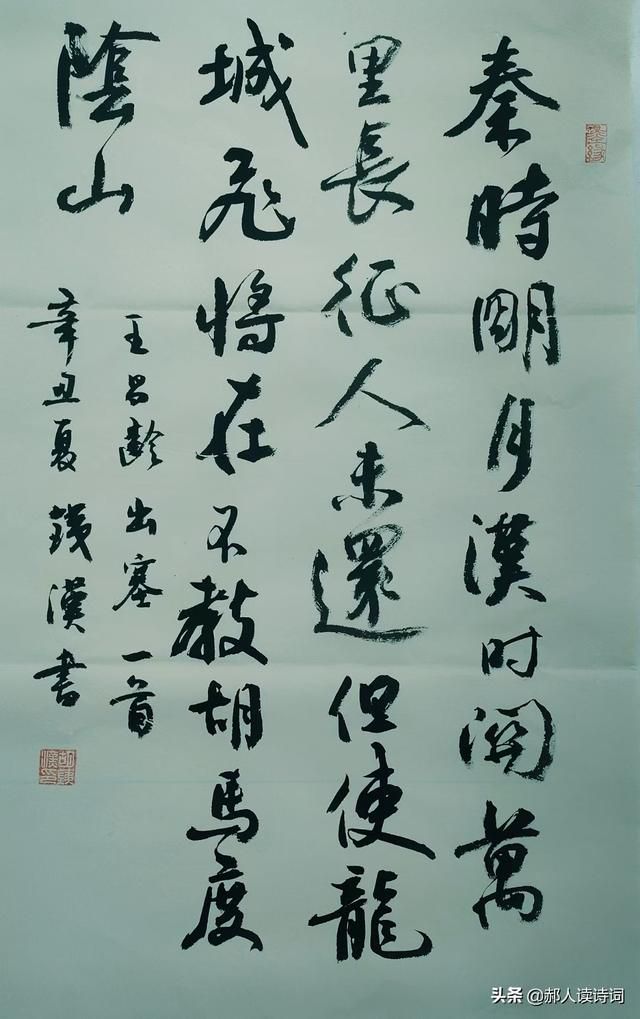 秦時明月漢时関萬
里長征人未還但使龍
城飛将在不教胡馬度
陰山
王昌齡出塞一首
辛丑夏錢漢書
头条@郝人读诗词